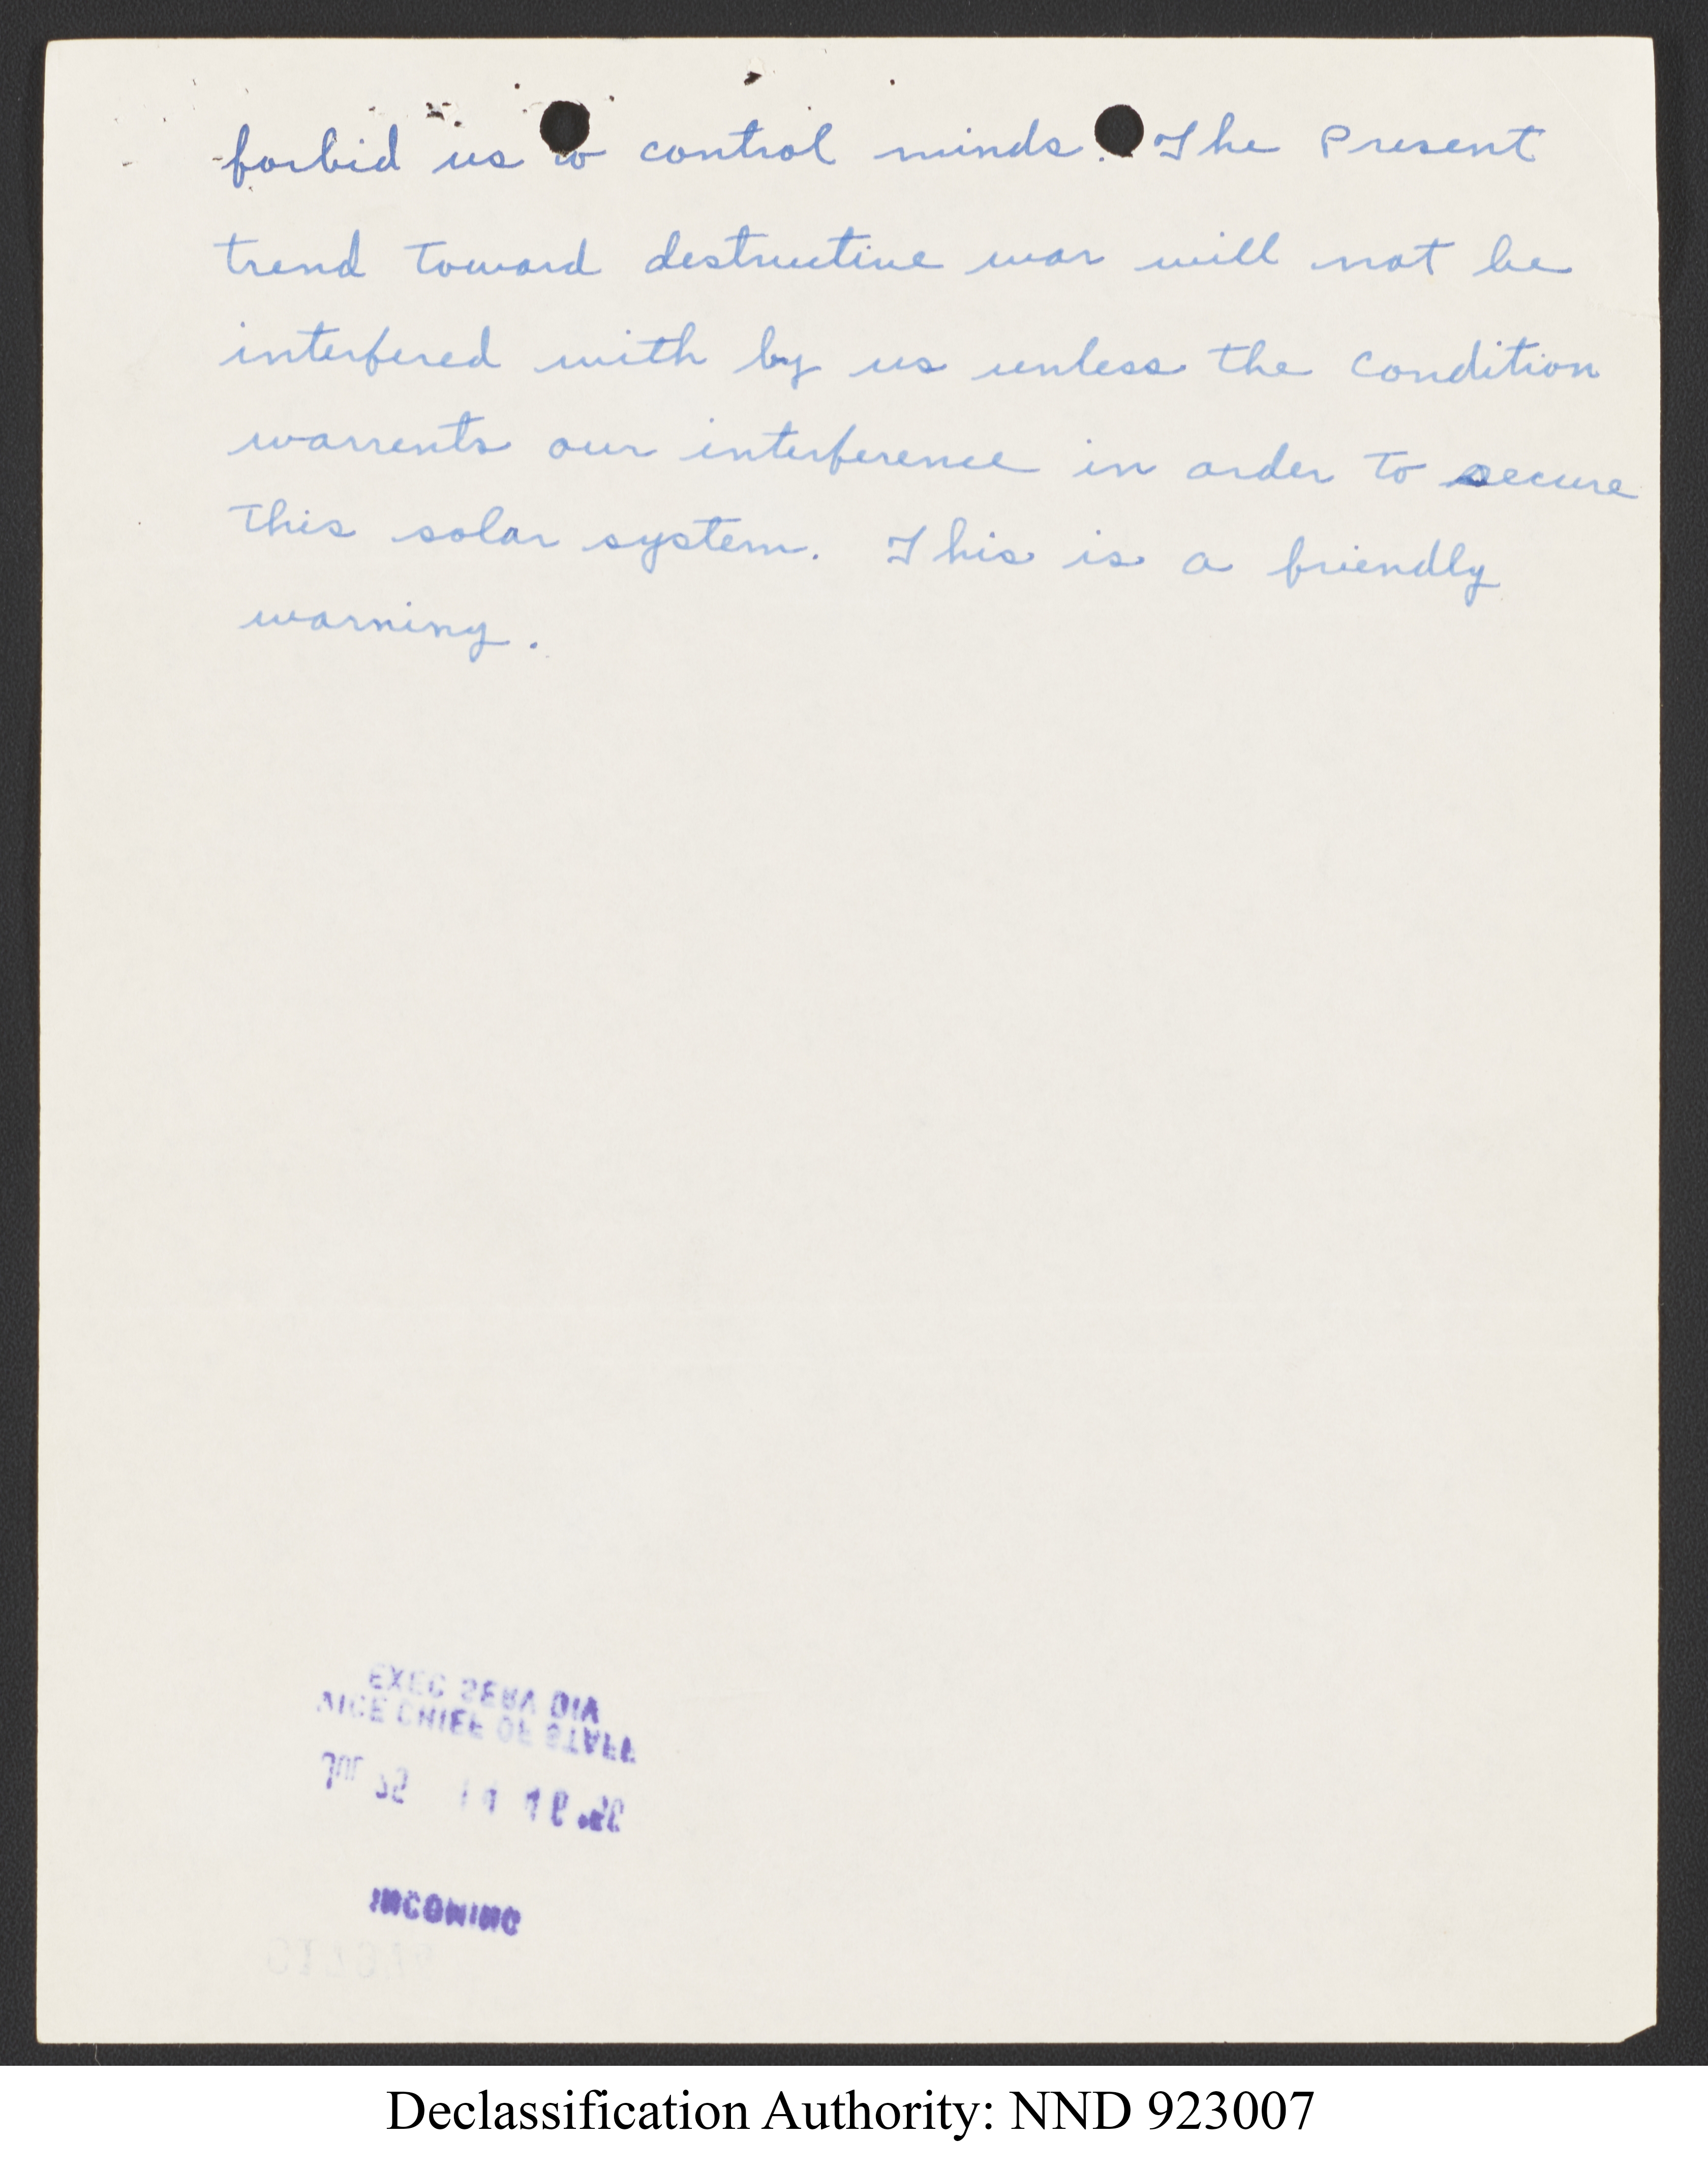 forbid us to control minds. The Present
trend toward destructive war will not be
interfered with by us unless the condition
warrents our interference in order to secure
this solar system. This is a friendly
warning.
EXEC SERV DIV
VICE CHIEF OF STAFF
JUL 25
INCOMING
Declassification Authority: NND 923007